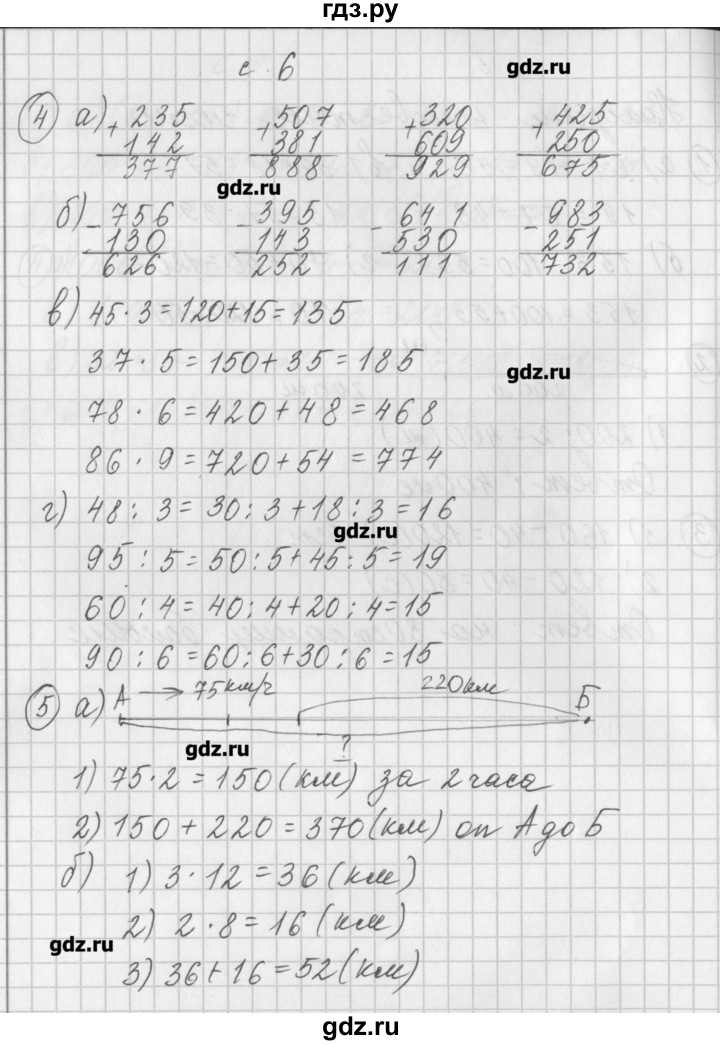 гдз.ру
с. 6
gdz.ru
4 а) + 235 + 507 + 320 + 425
142 381 609 250
377 888 929 675
gdz.ru
б) - 756 - 395 - 641 - 983
130 143 530 251
626 252 111 732
в) 45 · 3 = 120 + 15 = 135
37 · 5 = 150 + 35 = 185
gdz.ru
78 · 6 = 420 + 48 = 468
86 · 9 = 720 + 54 = 774
г) 48 : 3 = 30 : 3 + 18 : 3 = 16
gdz.ru
95 : 5 = 50 : 5 + 45 : 5 = 19
60 : 4 = 40 : 4 + 20 : 4 = 15
90 : 6 = 60 : 6 + 30 : 6 = 15
5 а) А → 75 км/ч 220 км Б
gdz.ru ?
1) 75 · 2 = 150 (км) за 2 часа
2) 150 + 220 = 370 (км) от А до Б
б) 1) 3 · 12 = 36 (км)
2) 2 · 8 = 16 (км)
gdz.ru
3) 36 + 16 = 52 (км)
gdz.ru